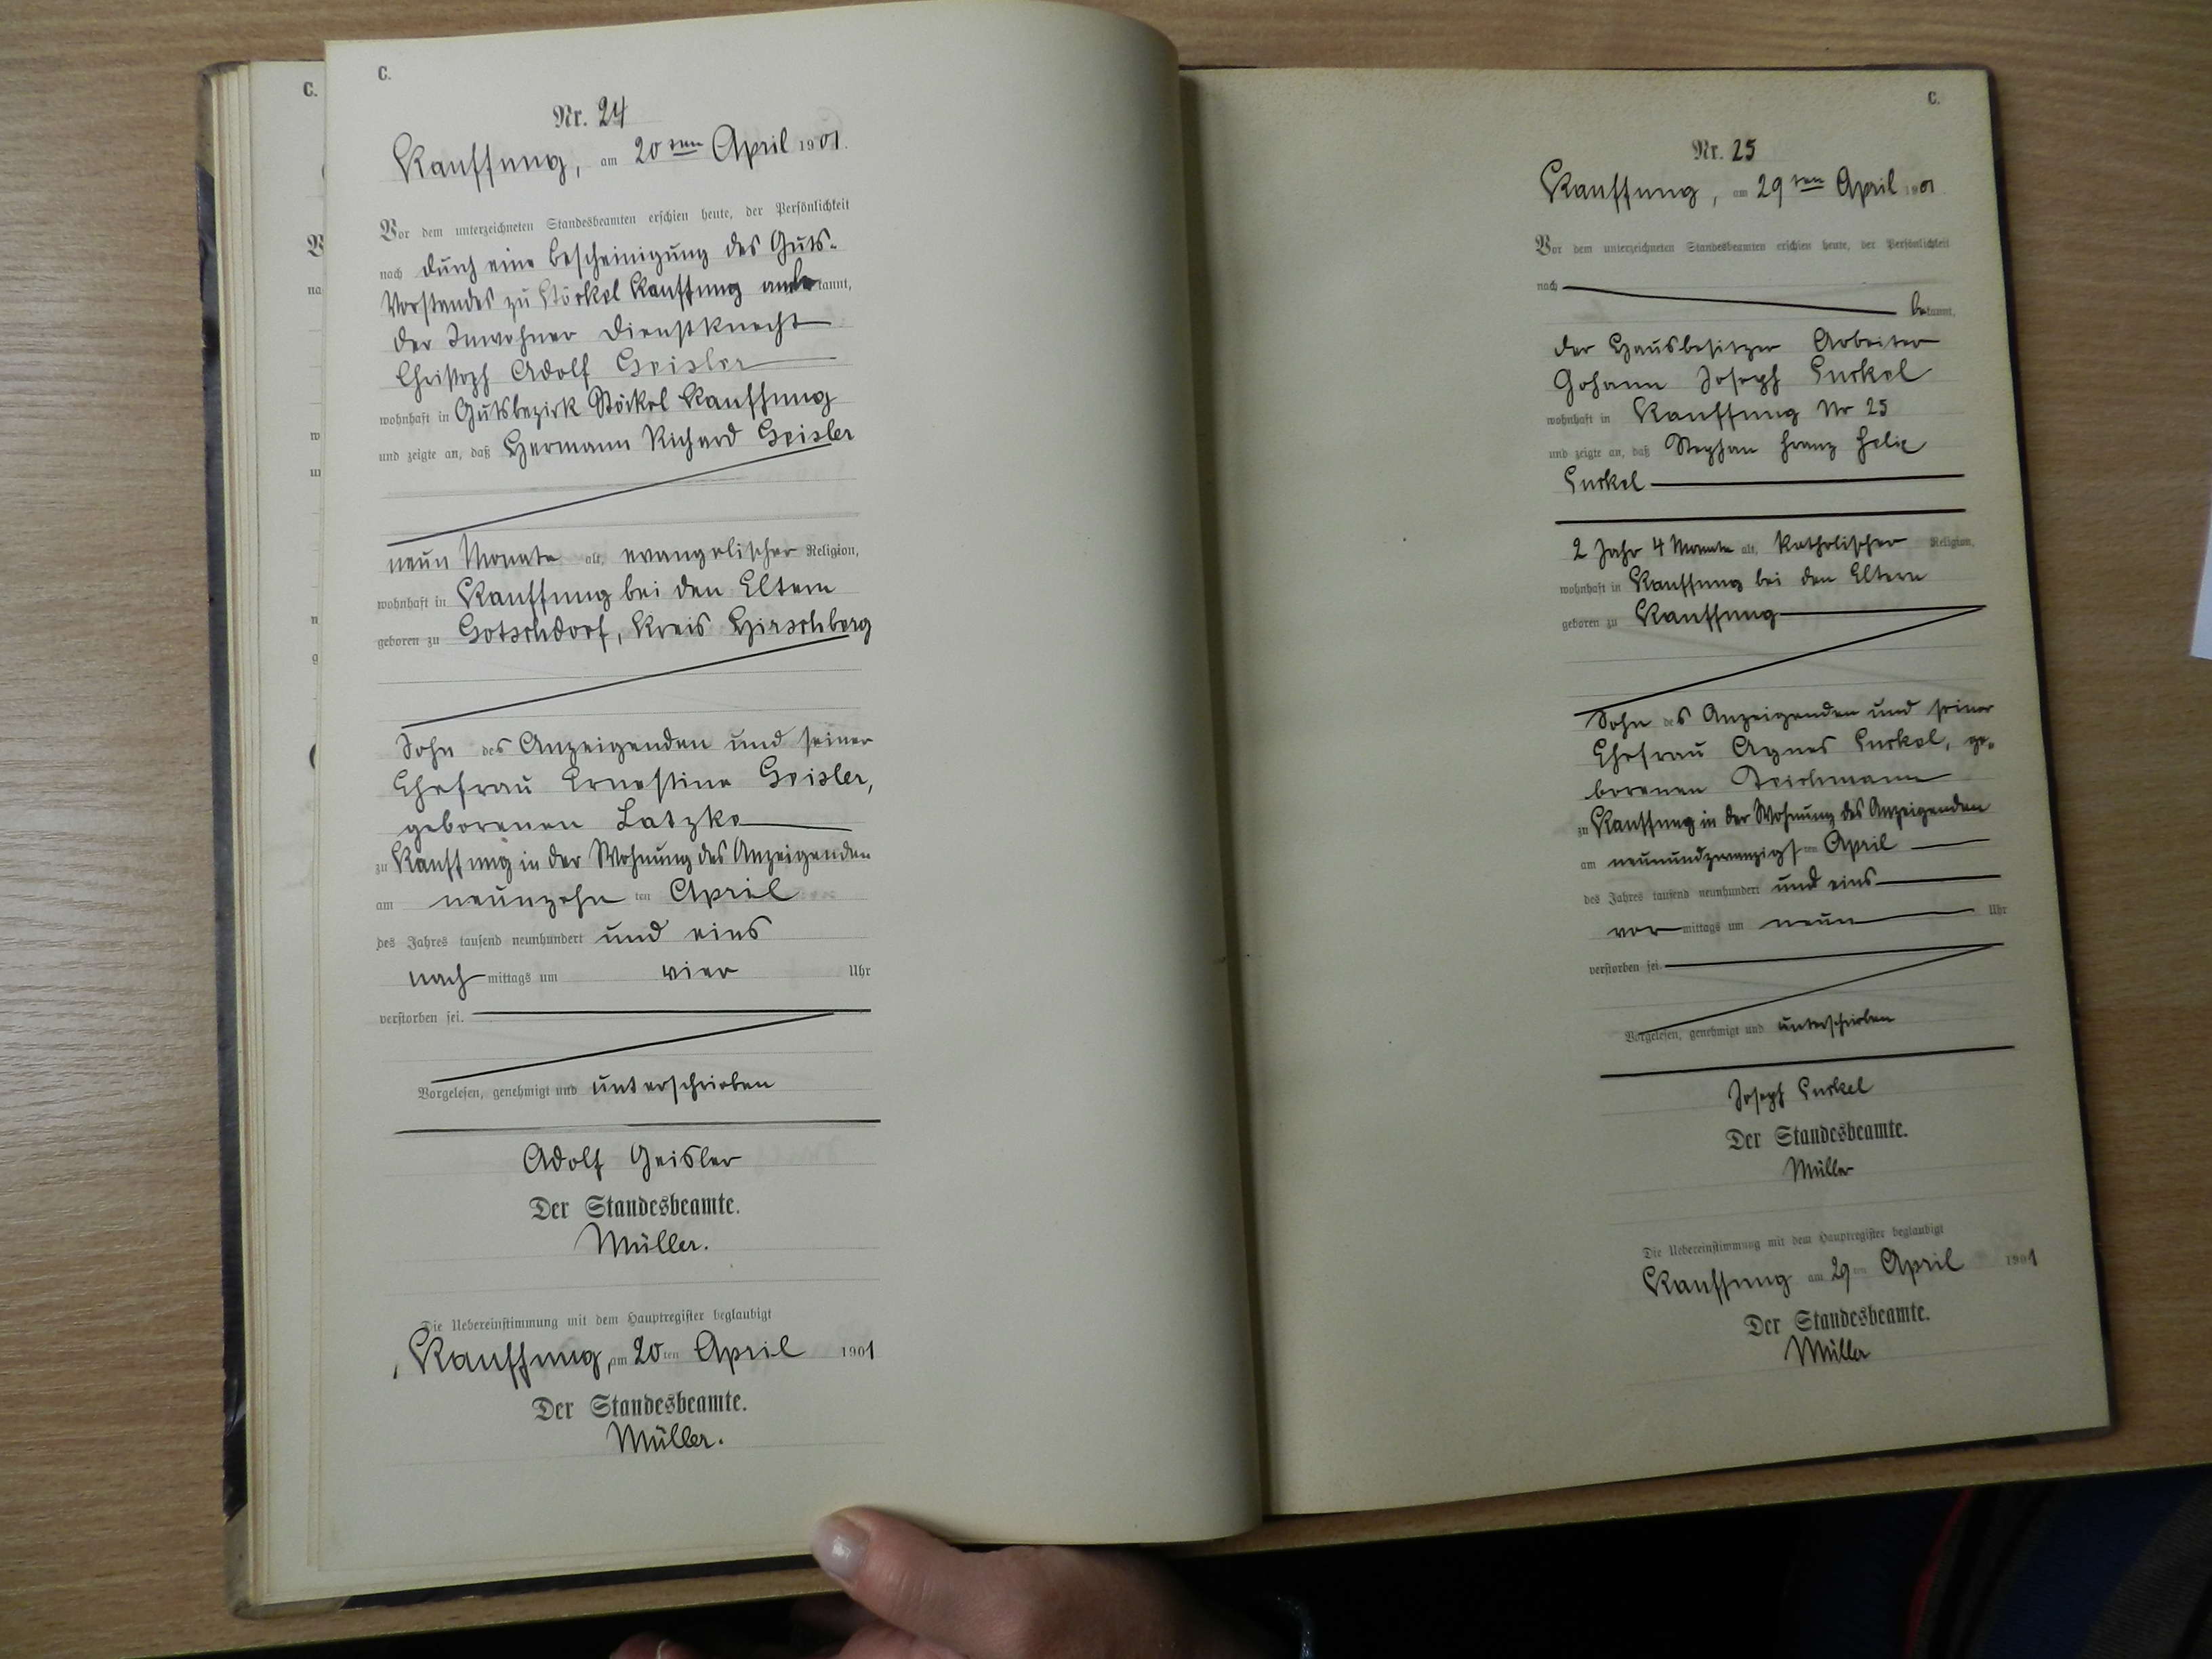 C.
Nr. 24
Kauffung, am 20ten April 1901.
Vor dem unterzeichneten Standesbeamten erschien heute, der Persönlichkeit
nach durch eine Bescheinigung des Guts-
Vorstandes zu Stöckel Kauffung anerkannt,
der Inwohner Dienstknecht
Christoph Adolf Geisler
wohnhaft in Gutsbezirk Stöckel Kauffung
und zeigte an, daß Hermann Richard Geisler
neun Monate alt, evangelischer Religion,
wohnhaft in Kauffung bei den Eltern
geboren zu Gotschdorf, Kreis Hirschberg
Sohn des Anzeigenden und seiner
Ehefrau Ernestine Geisler,
geborenen Latzke
zu Kauffung in der Wohnung des Anzeigenden
am neunzehn ten April
des Jahres tausend neunhundert und eins
nach mittags um vier Uhr
verstorben sei.
Vorgelesen, genehmigt und unterschrieben
Adolf Geisler
Der Standesbeamte.
Müller.
Die Uebereinstimmung mit dem Hauptregister beglaubigt
Kauffung, am 20ten April 1901
Der Standesbeamte.
Müller.
C.
Nr. 25
Kauffung, am 29ten April 1901
Vor dem unterzeichneten Standesbeamten erschien heute, der Persönlichkeit
nach
bekannt,
der Hausbesitzer Arbeiter
Johann Joseph
wohnhaft in Kauffung Nr 25
und zeigte an, daß Stephan Franz Felix
2 Jahr 4 Monate alt, katholischer Religion,
wohnhaft in Kauffung bei den Eltern
geboren zu Kauffung
Sohn des Anzeigenden und seiner
Ehefrau Agnes ge-
borenen Teichmann
zu Kauffung in der Wohnung des Anzeigenden
am neunundzwanzigsten April
des Jahres tausend neunhundert und eins
vor mittags um neun Uhr
verstorben sei.
Vorgelesen, genehmigt und unterschrieben
Joseph
Der Standesbeamte.
Müller
Die Uebereinstimmung mit dem Hauptregister beglaubigt
Kauffung am 29ten April 1901
Der Standesbeamte.
Müller